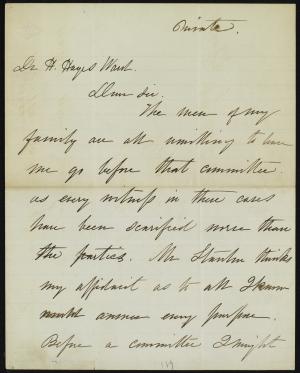 Private.
Dr H. Hayes Ward.
Dear Sir.
The men of my
family are all unwilling to have
me go before that committee.
as every witness in these cases
have been scarified worse than
the parties. Mr Stanton thinks
my affidavit as to all I know
would answer every purpose.
Before a committee I might